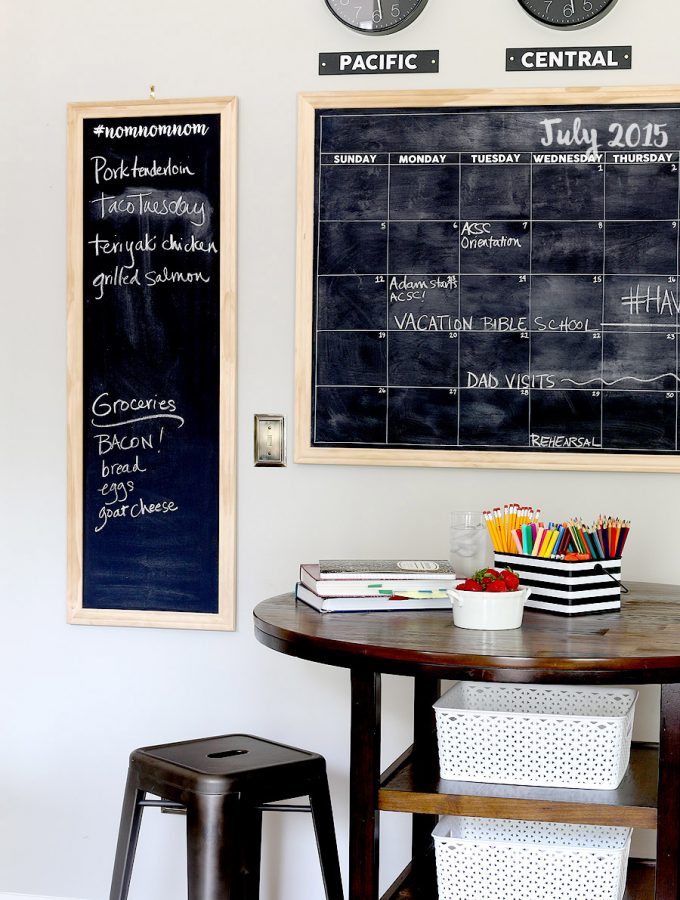 PACIFIC
CENTRAL
#nomnomnom
Pork tenderloin
Taco Tuesday
teriyaki chicken
grilled salmon
Groceries
BACON!
bread
eggs
goat cheese
July 2015
SUNDAY MONDAY TUESDAY WEDNESDAY THURSDAY
1 2
5 6 7 8 9
ACSC
Orientation
12 13 14 15 16
Adam starts
ACSC!
#HAV
VACATION BIBLE SCHOOL
19 20 21 22 23
DAD VISITS
26 27 28 29 30
REHEARSAL